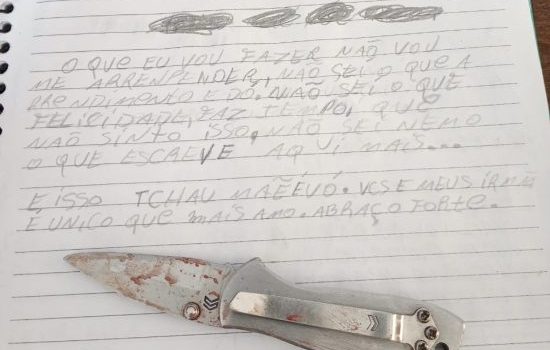 O QUE EU VOU FAZER NÃO VOU
ME ARRENPENDER, NÃO SEI O QUE A
PRENDIMENTO E DÓ. NÃO SEI O QUE
FELICIDADE, FAZ TEMPO, QUE
NÃO SINTO ISSO, NÃO SEI NEMO
O QUE ESCREVE AQUI MAIS...
E ISSO TCHAU MÃE E VÓ. VCS E MEUS IRMÃ
É UNICO QUE MAIS AMO. ABRAÇO FORTE.